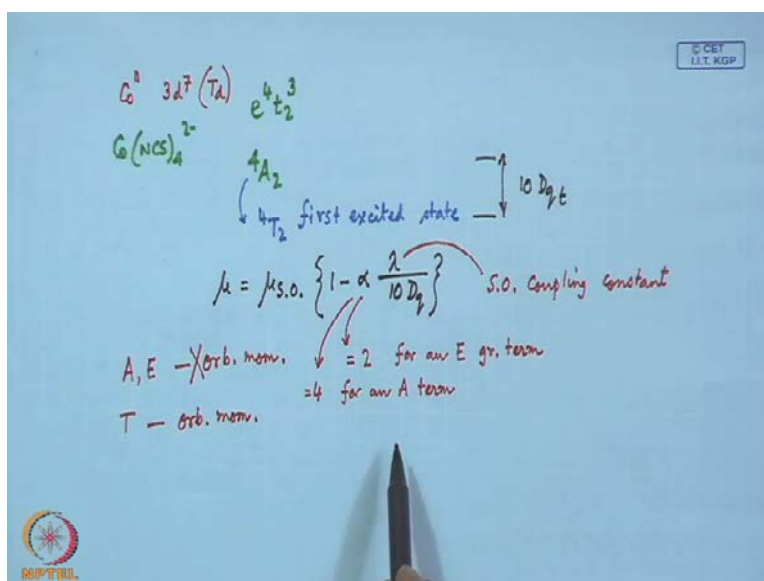 © CET
I.I.T. KGP
Co^II 3d^7 (Td) e^4 t_2^3
Co(NCS)_4^2-
^4A_2
^4T_2 first excited state
10 Dq_t
μ = μ_S.O. {1 - α λ/10 Dq}
S.O. Coupling constant
A, E — X orb. mom.
= 2 for an E gr. term
= 4 for an A term
T — orb. mom.
NPTEL